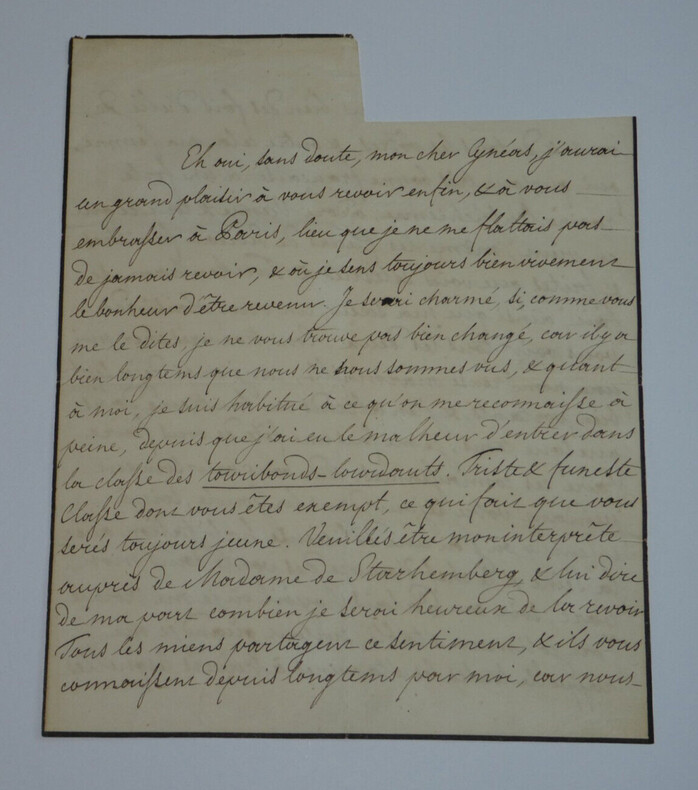 Eh oui, sans doute, mon cher Cynéas, j'aurai
un grand plaisir à vous revoir enfin, & à vous
embrasser à Paris, lieu que je ne me flattais pas
de jamais revoir, & où je sens toujours bien vivement
le bonheur d'être revenu. Je serai charmé, si, comme vous
me le dites, je ne vous trouve pas bien changé, car il y a
bien longtems que nous ne nous sommes vus, & quant
à moi, je suis habitué à ce qu'on me reconnaisse à
peine, depuis que j'ai eu le malheur d'entrer dans
la classe des touribonds-lourdauts. Triste & funeste
classe dont vous êtes exempt, ce qui fait que vous
serés toujours jeune. Veuillés être mon interprête
auprès de Madame de Starhemberg, & lui dire
de ma part combien je serai heureux de la revoir
Tous les miens partagent ce sentiment, & ils vous
connaissent depuis longtems par moi, car nous